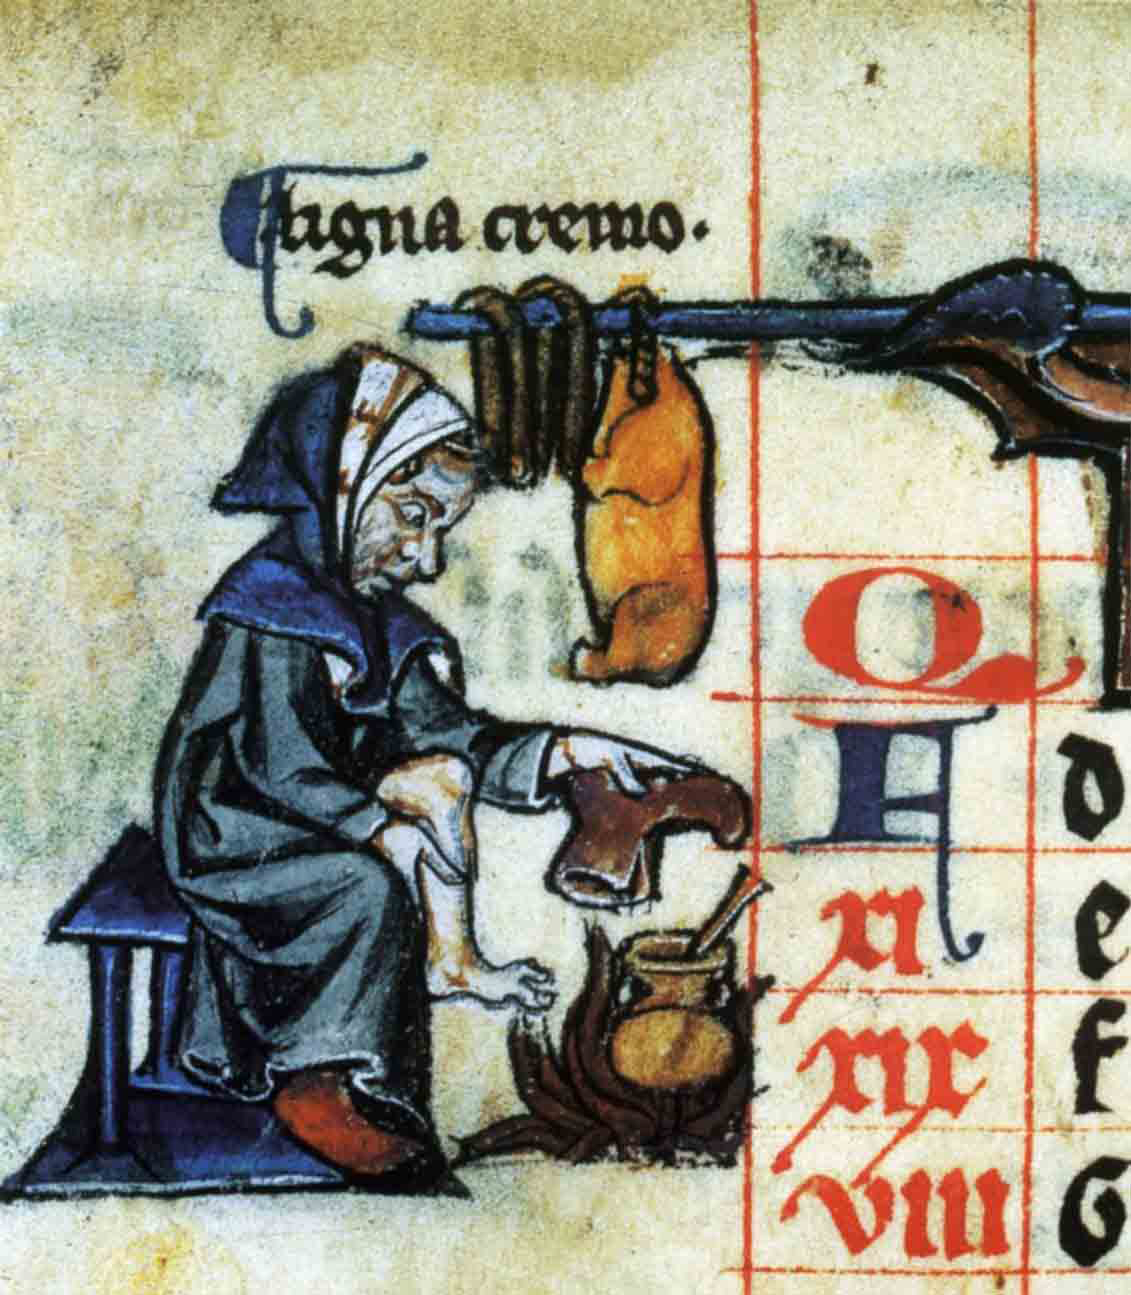 ¶ ligna cremo.
Q
A d
xi e
xix f
viii G